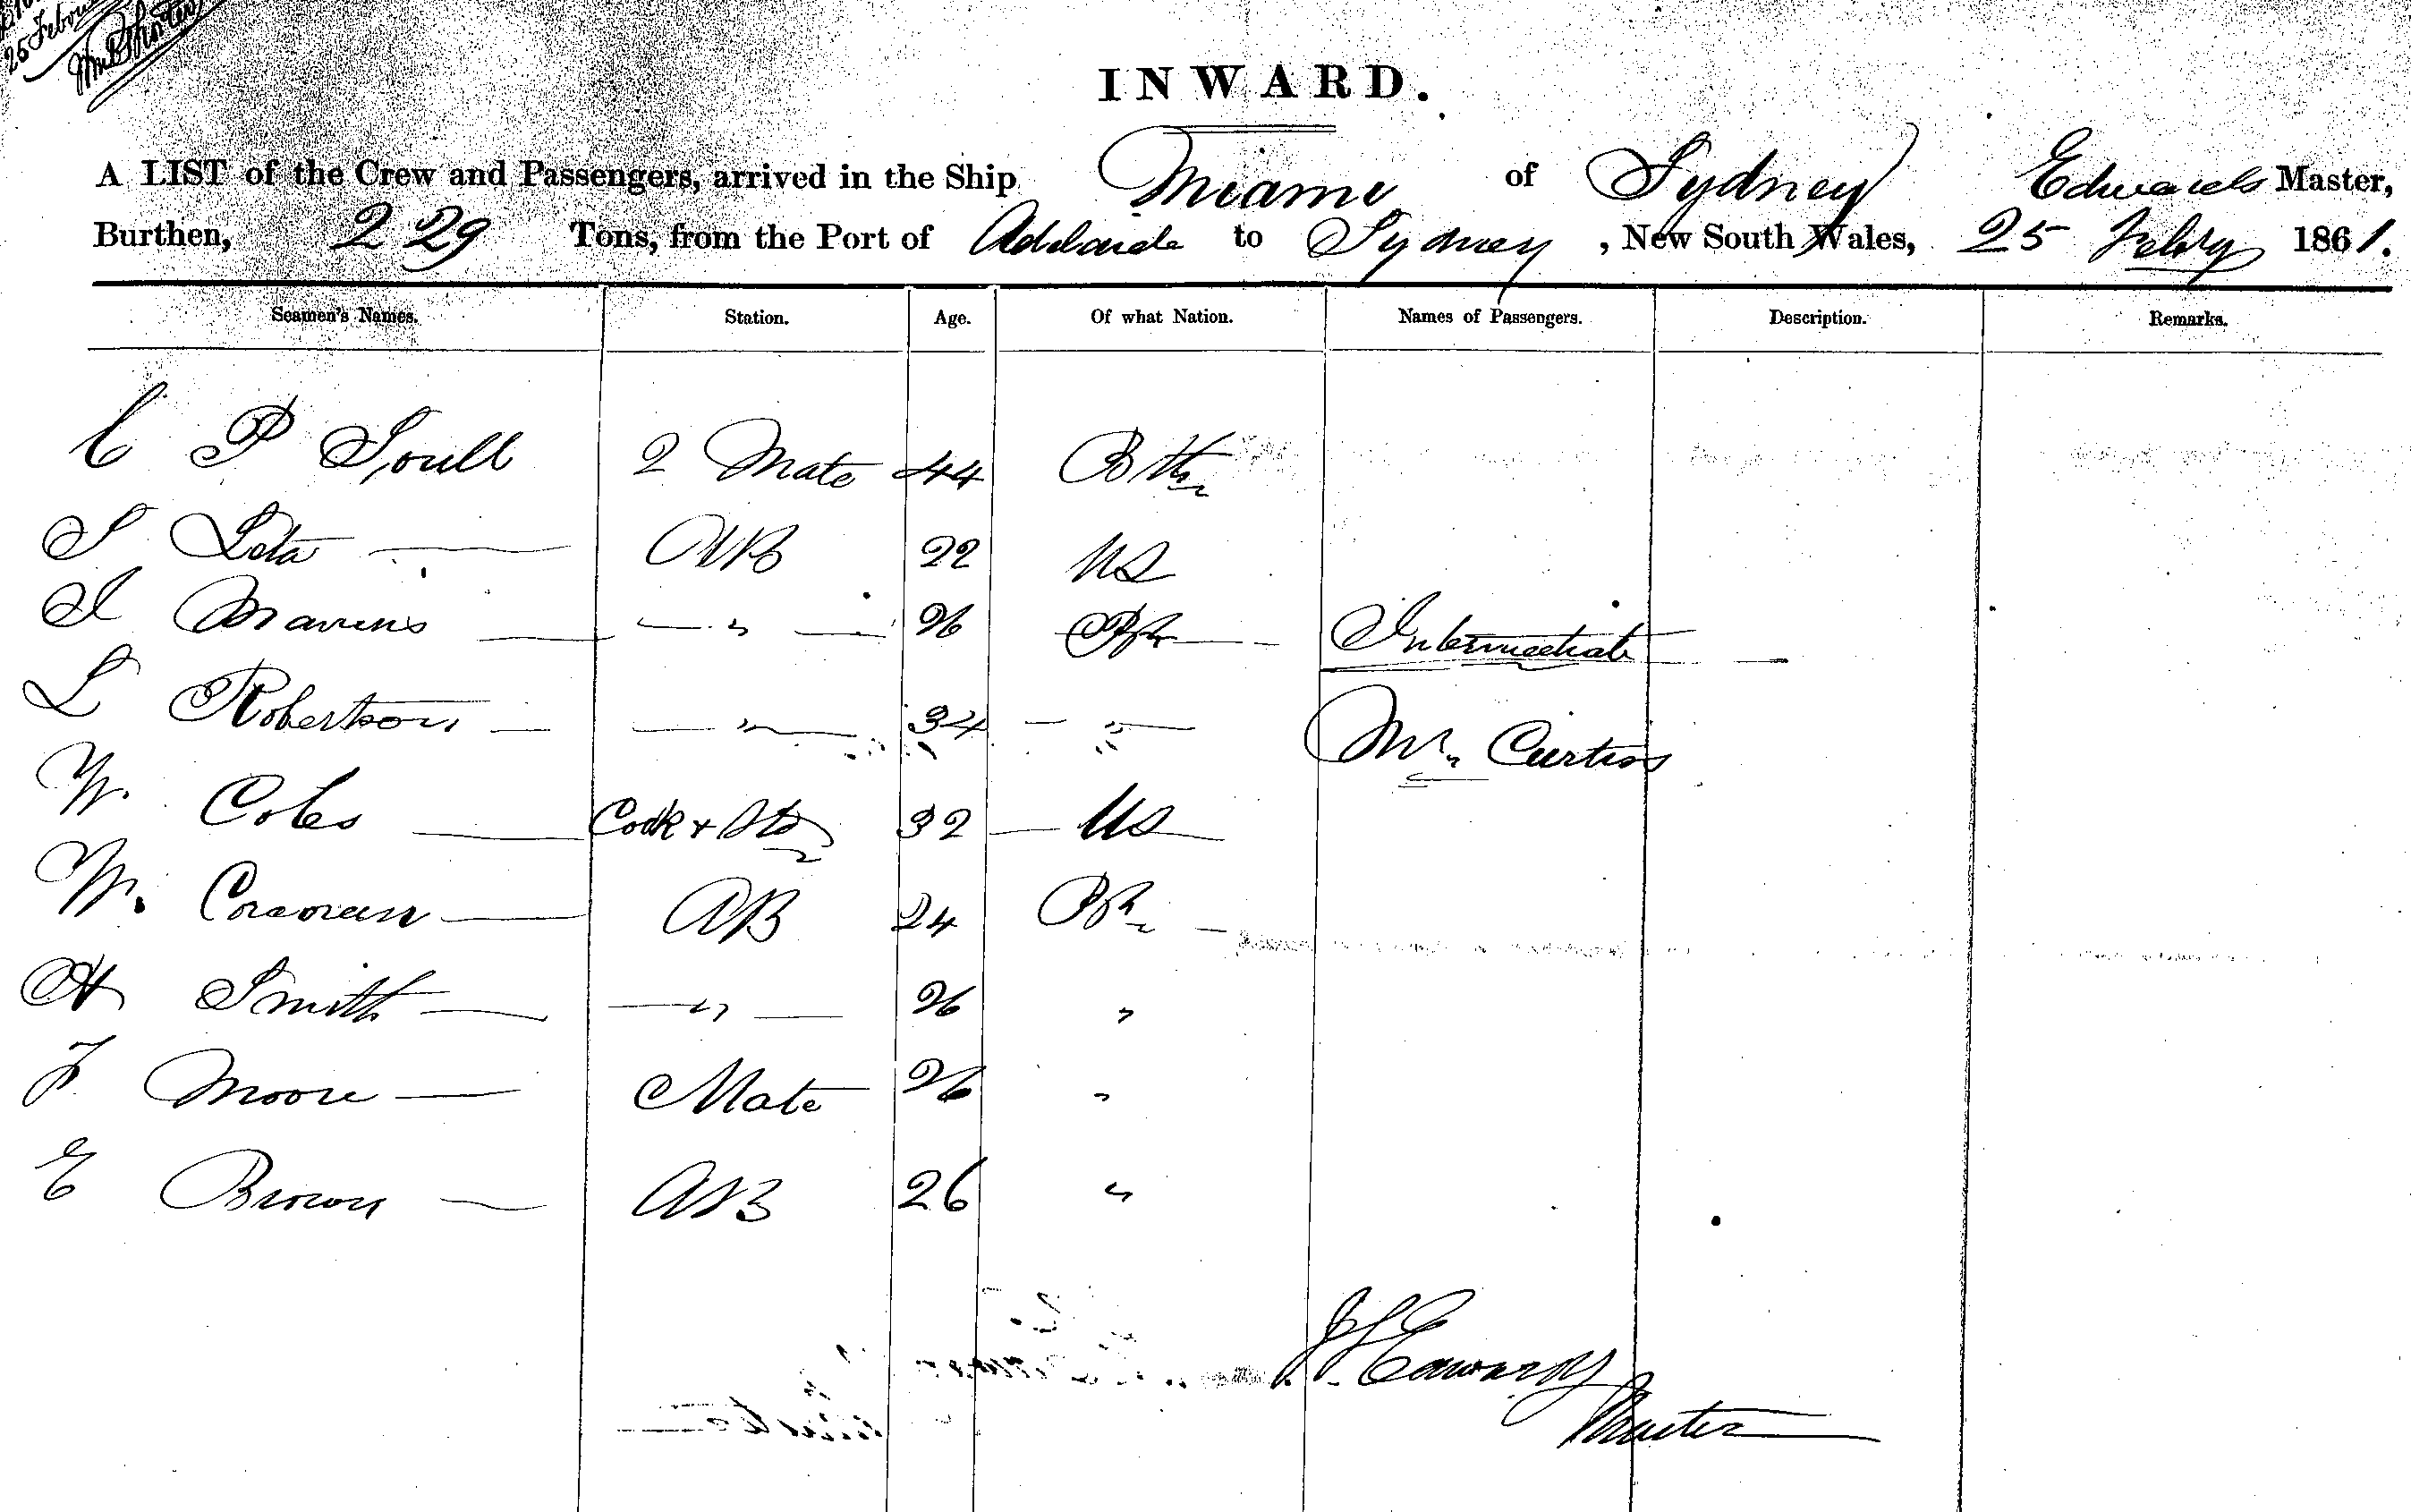 25 Feb
INWARD.
A LIST of the Crew and Passengers, arrived in the Ship Miami of Sydney Edwards Master,
Burthen, 229 Tons, from the Port of Adelaide to Sydney, New South Wales, 25 Febry 1861.
Seamen's Names. Station. Age. Of what Nation. Names of Passengers. Description. Remarks.
C P Soull 2 Mate 44
S AB 22 US
26 Intermediate
L Robertson — " — 34 — " — Mr. Curtiss
W. Coles Cook & Std 32 — US
W. AB 24
H Smith — " — 26 "
F Moore — Mate 26 "
E Brown — AB 26 "
Edwards
Master